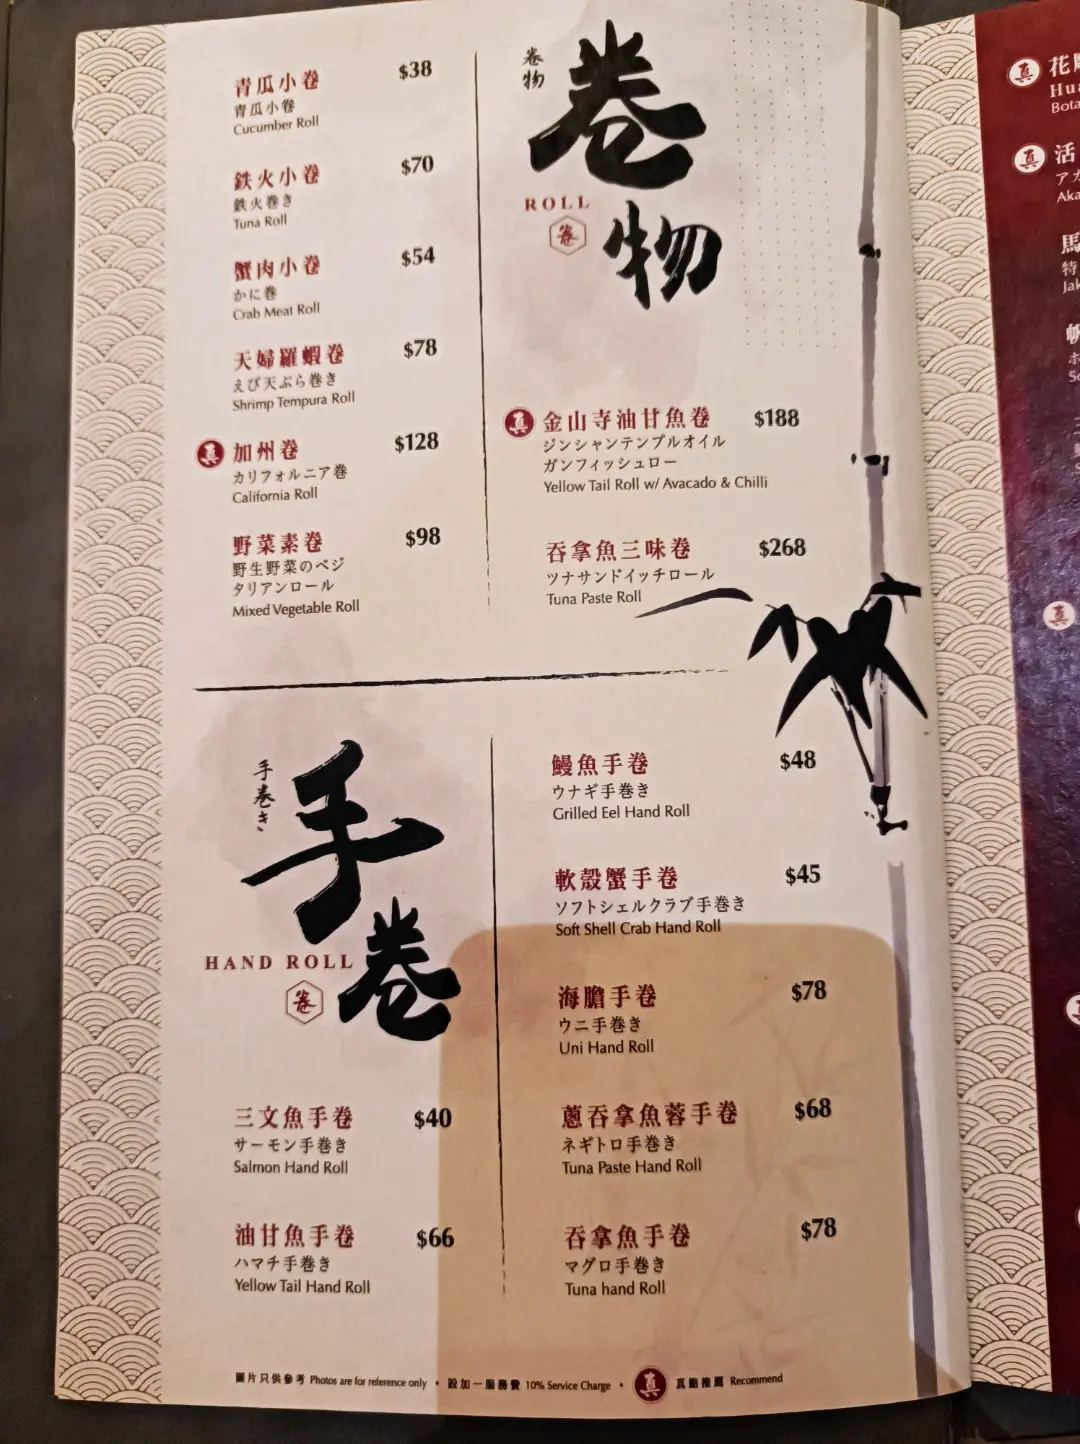 青瓜小卷 $38
青瓜小卷
Cucumber Roll
鉄火小卷 $70
鉄火巻き
Tuna Roll
蟹肉小卷 $54
かに巻
Crab Meat Roll
天婦羅蝦卷 $78
えび天ぷら巻き
Shrimp Tempura Roll
真 加州卷 $128
カリフォルニア巻
California Roll
野菜素卷 $98
野生野菜のベジ
タリアンロール
Mixed Vegetable Roll
卷物
卷物
ROLL
卷
真 金山寺油甘魚卷 $188
ジンシャンテンプルオイル
ガンフィッシュロー
Yellow Tail Roll w/ Avacado & Chilli
吞拿魚三味卷 $268
ツナサンドイッチロール
Tuna Paste Roll
手巻き
手卷
HAND ROLL
卷
三文魚手卷 $40
サーモン手巻き
Salmon Hand Roll
油甘魚手卷 $66
ハマチ手巻き
Yellow Tail Hand Roll
鰻魚手卷 $48
ウナギ手巻き
Grilled Eel Hand Roll
軟殼蟹手卷 $45
ソフトシェルクラブ手巻き
Soft Shell Crab Hand Roll
海膽手卷 $78
ウニ手巻き
Uni Hand Roll
蔥吞拿魚蓉手卷 $68
ネギトロ手巻き
Tuna Paste Hand Roll
吞拿魚手卷 $78
マグロ手巻き
Tuna hand Roll
圖片只供參考 Photos are for reference only • 設加一服務費 10% Service Charge • 真 真鮨推薦 Recommend
真 花
Hu
Bota
真 活
アカ
Aka
馬
特
Jak
真